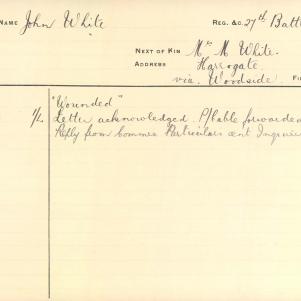 NAME John White REG. &c. 27th Batt
NEXT OF KIN Mr M White.
ADDRESS Harrogate
via. Woodside. FI
"Wounded"
Letter acknowledged. P/Cable forwarded
Reply from Commee Particulars sent